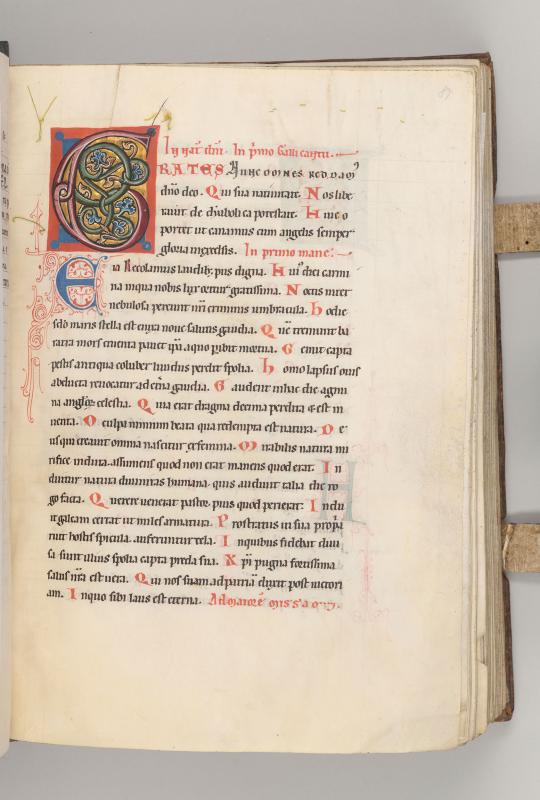 In nat̄ dn̄i. In p̄mo Galli cantu.
GRATES NUNC OMNES REDDAM'
dn̄o deo. Qui sua natiuitate. Nos libe
rauit de diabolica potestate. Huic o
portet ut canamus cum angelis semper
gloria in excelsis. In primo mane.
Eia Recolamus laudib; piis digna. Hui' diei carmi
na in qua nobis lux oritur gratissima. Noctis inter
nebulosa pereunt nr̄i criminis umbracula. Hodie
sclo maris stella est enixa noue salutis gaudia. Quē tremunt ba
ratra mors cruenta pauet ip̄a a quo pibit mortua. Gemit capta
pestis antiqua coluber liuidus perdit spolia. Homo lapsus ouis
abducta reuocatur ad et̄na gaudia. Gaudent in hac die agmi
na anglor; celestia. Quia erat dragma decima perdita & est in
uenta. O culpa nimium beata qua redempta est natura. De'
us qui creauit omnia nascitur ex femina. Mirabilis natura mi
rifice induta assumens quod non erat manens quod erat. In
duitur natura diuinitas humana quis audiuit talia dic ro
go facta. Querere uenerat pastor pius quod perierat. Indu
it galeam certat ut miles armatura. Prostratus in sua propa
ruit hostis spicula. auferuntur tela. In quibus fidebat diui
sa sunt illius spolia capta preda sua. Xp̄i pugna fortissima
salus nr̄a est uera. Qui nos suam ad patriā duxit post uictori
am. In quo sibi laus est eterna. Ad maiorē missā